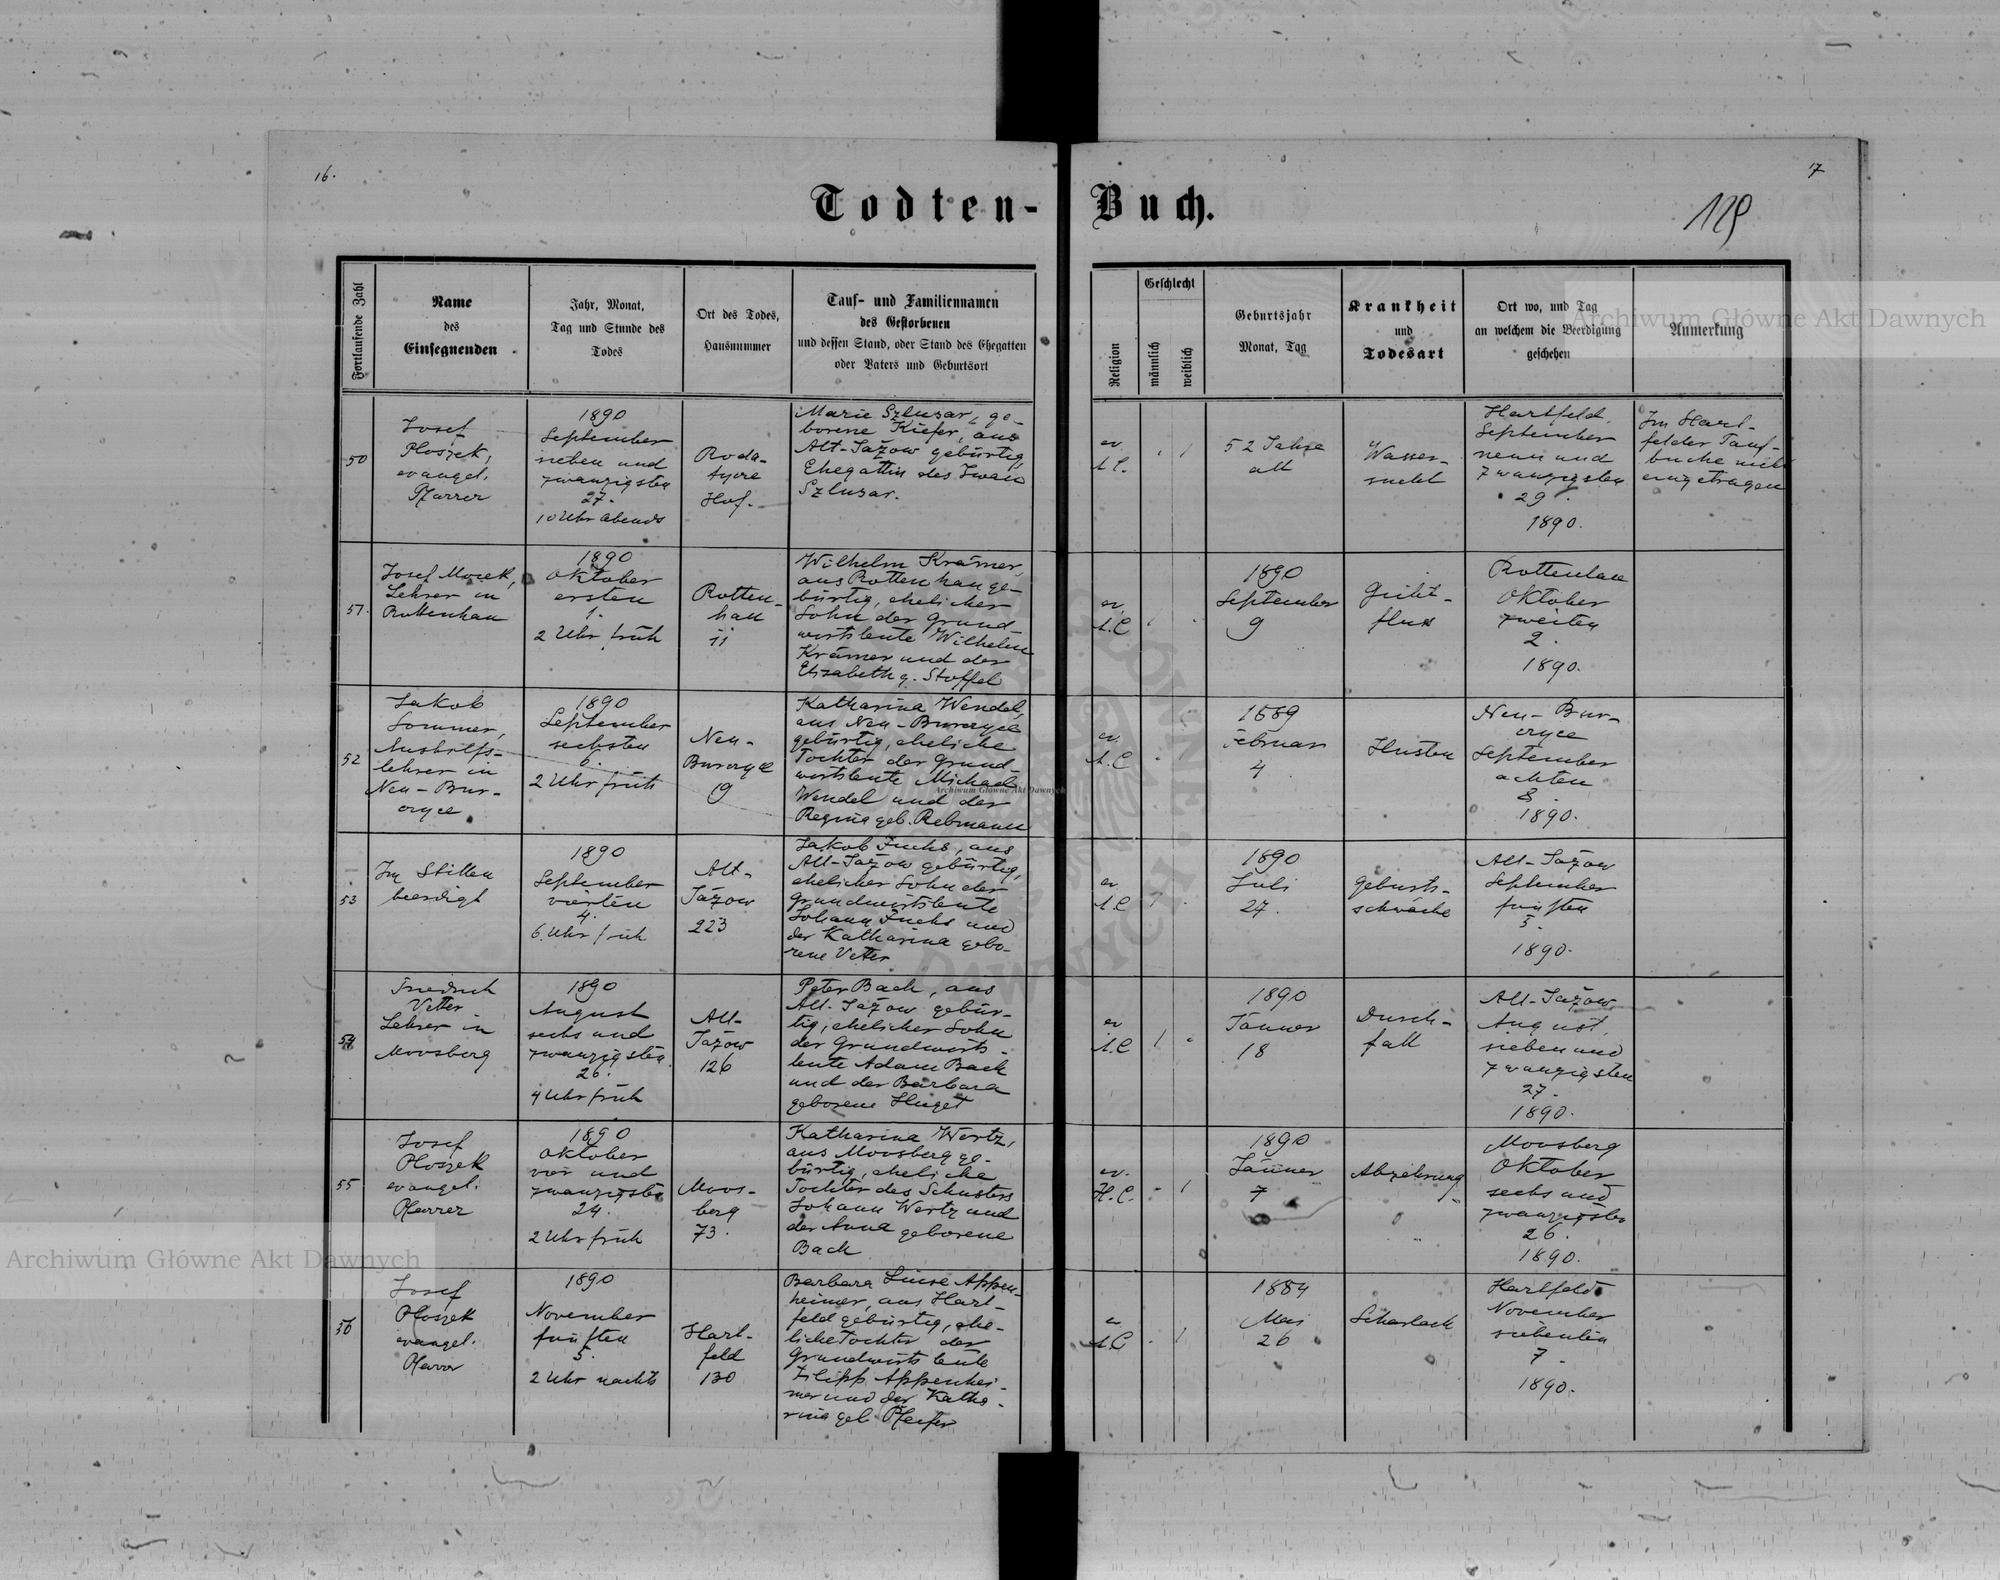 16.
17
129
Todten-Buch.
Fortlaufende Zahl
Name
des
Einsegnenden
Jahr, Monat,
Tag und Stunde des
Todes
Ort des Todes,
Hausnummer
Tauf- und Familiennamen
des Gestorbenen
und dessen Stand, oder Stand des Ehegatten
oder Vaters und Geburtsort
Religion
Geschlecht
männlich
weiblich
Geburtsjahr
Monat, Tag
Krankheit
und
Todesart
Ort wo, und Tag
an welchem die Beerdigung
geschehen
Anmerkung
50
Josef
Ploszek,
evangel.
Pfarrer
1890
September
sieben und
zwanzigsten
27.
10 Uhr abends
Roda-
tycze
Hof.
Marie Szlusar, ge-
borene Kiefer, aus
Alt-Jażow gebürtig,
Ehegattin des Iwan
Szlusar.
ev
A.C.
1
52 Jahre
alt
Wasser-
sucht
Hartfeld.
September
neun und
zwanzigsten
29.
1890.
Im Hart-
felder Tauf-
buche nicht
eingetragen
51.
Josef Mocek,
Lehrer in
Rottenhan
1890
Oktober
ersten
1.
2 Uhr früh
Rotten-
han
11
Wilhelm Krämer,
aus Rottenhan ge-
bürtig, ehelicher
Sohn der Grund-
wirtsleute Wilhelm
Krämer und der
Elisabeth g. Stoffel
ev.
A.C
1
1890
September
9
Gicht-
fluss
Rottenhan
Oktober
zweiten
2.
1890.
52
Jakob
Sommer,
Aushilfs-
lehrer in
Neu-Bur-
czyce
1890
September
sechsten
6.
2 Uhr früh
Neu-
Burczyce
19
Katharina Wendel,
aus Neu-Burczyce
gebürtig, eheliche
Tochter der Grund-
wirtsleute Michael
Wendel und der
Regina geb. Rebmann
ev.
A.C
1889
Februar
4
Husten
Neu-Bur-
czyce
September
achten
8.
1890.
53
Im Stillen
beerdigt
1890
September
vierten
4.
6. Uhr früh
Alt-
Jażow
223
Jakob Fuchs, aus
Alt-Jażow gebürtig,
ehelicher Sohn der
Grundwirtsleute
Johann Fuchs und
der Katharina gebo-
rene Vetter
ev
A.C
1
1890
Juli
27.
Geburts-
schwäche
Alt-Jażow
September
fünften
5.
1890.
54
Friedrich
Vetter
Lehrer in
Moosberg
1890
August
sechs und
zwanzigsten
26.
4 Uhr früh
Alt-
Jażow
126
Peter Bach, aus
Alt-Jażow gebür-
tig, ehelicher Sohn
der Grundwirts-
leute Adam Bach
und der Barbara
geborene Huget
ev
A.C
1
1890
Jänner
18
Durch-
fall
Alt-Jażow
August
sieben und
zwanzigsten
27.
1890.
55
Josef
Ploszek
evangel.
Pfarrer
1890
Oktober
vier und
zwanzigsten
24.
2 Uhr früh
Moos-
berg
73.
Katharina Wertz,
aus Moosberg ge-
bürtig, eheliche
Tochter des Schusters
Johann Wertz und
der Anna geborene
Bach
ev.
H.C.
1
1890
Jänner
7
Abzehrung
Moosberg
Oktober
sechs und
zwanzigsten
26.
1890.
56
Josef
Ploszek
evangel.
Pfarrer
1890
November
fünften
5.
2 Uhr nachts
Hart-
feld
130
Barbara Luise Appen-
heimer, aus Hart-
feld gebürtig, ehe-
liche Tochter der
Grundwirtsleute
Filipp Appenhei-
mer und der Katha-
rina geb. Pfeifer
A.C
1
1884
Mai
26
Scharlach
Hartfeld
November
siebenten
7.
1890.
Archiwum Główne Akt Dawnych
Archiwum Główne Akt Dawnych
Archiwum Główne Akt Dawnych